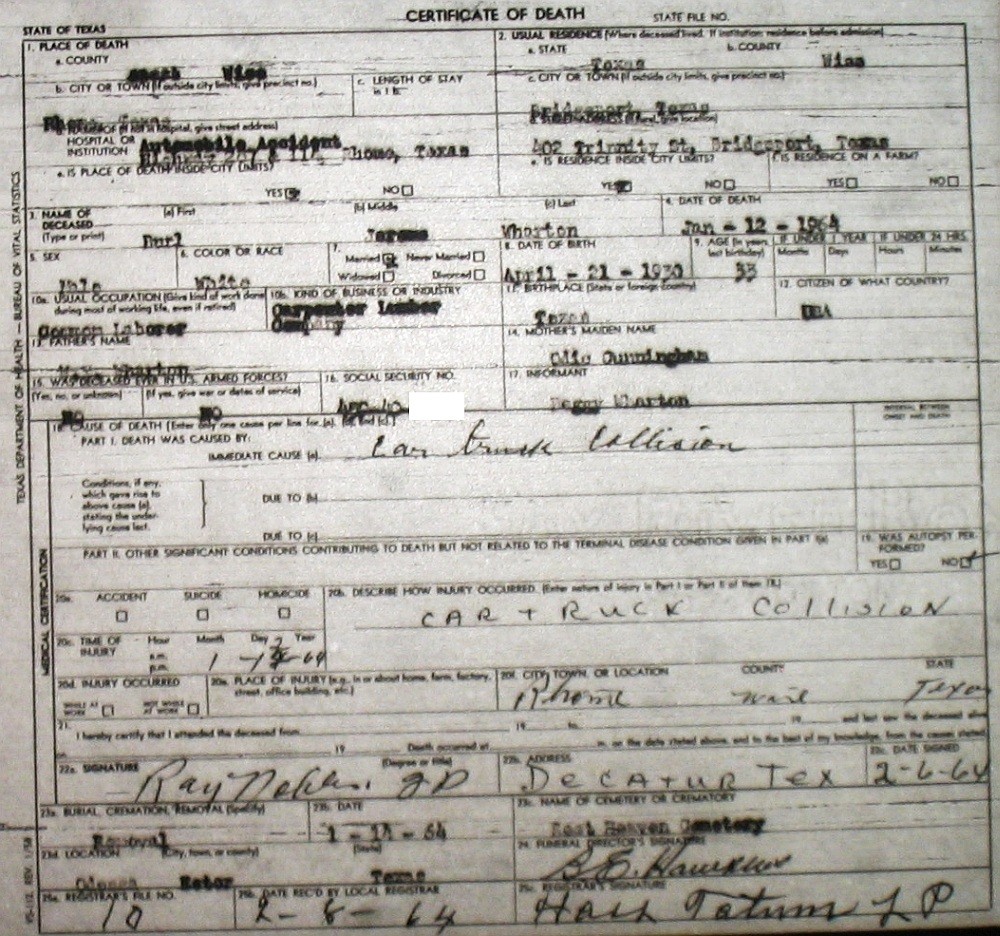 CERTIFICATE OF DEATH
STATE OF TEXAS STATE FILE NO.
1. PLACE OF DEATH
a. COUNTY
Wise
2. USUAL RESIDENCE (Where deceased lived. If institution: residence before admission)
a. STATE b. COUNTY
Texas Wise
b. CITY OR TOWN (If outside city limits, give precinct no.)
c. LENGTH OF STAY in 1 b.
c. CITY OR TOWN (If outside city limits, give precinct no.)
Rhome, Texas
Bridgeport, Texas
HOSPITAL OR INSTITUTION
(If not in hospital, give street address)
Automobile Accident
Rhome, Texas
402 Trinnity St, Bridgeport, Texas
e. IS PLACE OF DEATH INSIDE CITY LIMITS?
YES NO
e. IS RESIDENCE INSIDE CITY LIMITS?
YES NO
f. IS RESIDENCE ON A FARM?
YES NO
3. NAME OF DECEASED
(Type or print)
(a) First (b) Middle (c) Last
Durl Jerome Wharton
4. DATE OF DEATH
Jan - 12 - 1964
5. SEX
Male
6. COLOR OR RACE
White
7.
Married Never Married
Widowed Divorced
8. DATE OF BIRTH
April - 21 - 1930
9. AGE (In years last birthday)
33
IF UNDER 1 YEAR
Months Days
IF UNDER 24 HRS.
Hours Minutes
10a. USUAL OCCUPATION (Give kind of work done during most of working life, even if retired)
Common Laborer
10b. KIND OF BUSINESS OR INDUSTRY
Carpenter Lumber
Company
11. BIRTHPLACE (State or foreign country)
Texas
12. CITIZEN OF WHAT COUNTRY?
USA
13. FATHER'S NAME
Wharton
14. MOTHER'S MAIDEN NAME
Odie Cunningham
15. WAS DECEASED EVER IN U.S. ARMED FORCES?
(Yes, no, or unknown) (If yes, give war or dates of service)
NO NO
16. SOCIAL SECURITY NO.
17. INFORMANT
Peggy Wharton
18. CAUSE OF DEATH (Enter only one cause per line for (a), (b), and (c).)
INTERVAL BETWEEN ONSET AND DEATH
PART I. DEATH WAS CAUSED BY:
IMMEDIATE CAUSE (a)
Car truck Collision
Conditions, if any,
which gave rise to
above cause (a),
stating the under-
lying cause last.
DUE TO (b)
DUE TO (c)
PART II. OTHER SIGNIFICANT CONDITIONS CONTRIBUTING TO DEATH BUT NOT RELATED TO THE TERMINAL DISEASE CONDITION GIVEN IN PART I(a)
19. WAS AUTOPSY PER-
FORMED?
YES NO
20a. ACCIDENT SUICIDE HOMICIDE
20b. DESCRIBE HOW INJURY OCCURRED. (Enter nature of injury in Part I or Part II of item 18.)
CAR TRUCK COLLISION
20c. TIME OF INJURY
Hour Month Day Year
a.m.
p.m.
20d. INJURY OCCURRED
WHILE AT WORK NOT WHILE AT WORK
20e. PLACE OF INJURY (e.g., in or about home, farm, factory, street, office building, etc.)
20f. CITY, TOWN, OR LOCATION COUNTY STATE
Rhome Wise Texas
21.
I hereby certify that I attended the deceased from 19 to 19 and last saw the deceased alive
on 19 Death occurred at m. on the date stated above, and to the best of my knowledge, from the causes stated.
22a. SIGNATURE (Degree or title)
Ray JP
22b. ADDRESS
DECATUR TEX
22c. DATE SIGNED
2-6-64
23a. BURIAL, CREMATION, REMOVAL (Specify)
Removal
23b. DATE
1 - 14 - 64
23c. NAME OF CEMETERY OR CREMATORY
Rest Haven Cemetery
23d. LOCATION (City, town, or county) (State)
Ector Texas
24. FUNERAL DIRECTOR'S SIGNATURE
B.E. Hawkins
25a. REGISTRAR'S FILE NO.
10
25b. DATE REC'D BY LOCAL REGISTRAR
2-8-64
25c. REGISTRAR'S SIGNATURE
Tatum
TEXAS DEPARTMENT OF HEALTH — BUREAU OF VITAL STATISTICS
MEDICAL CERTIFICATION
VS-112. REV. 1/58